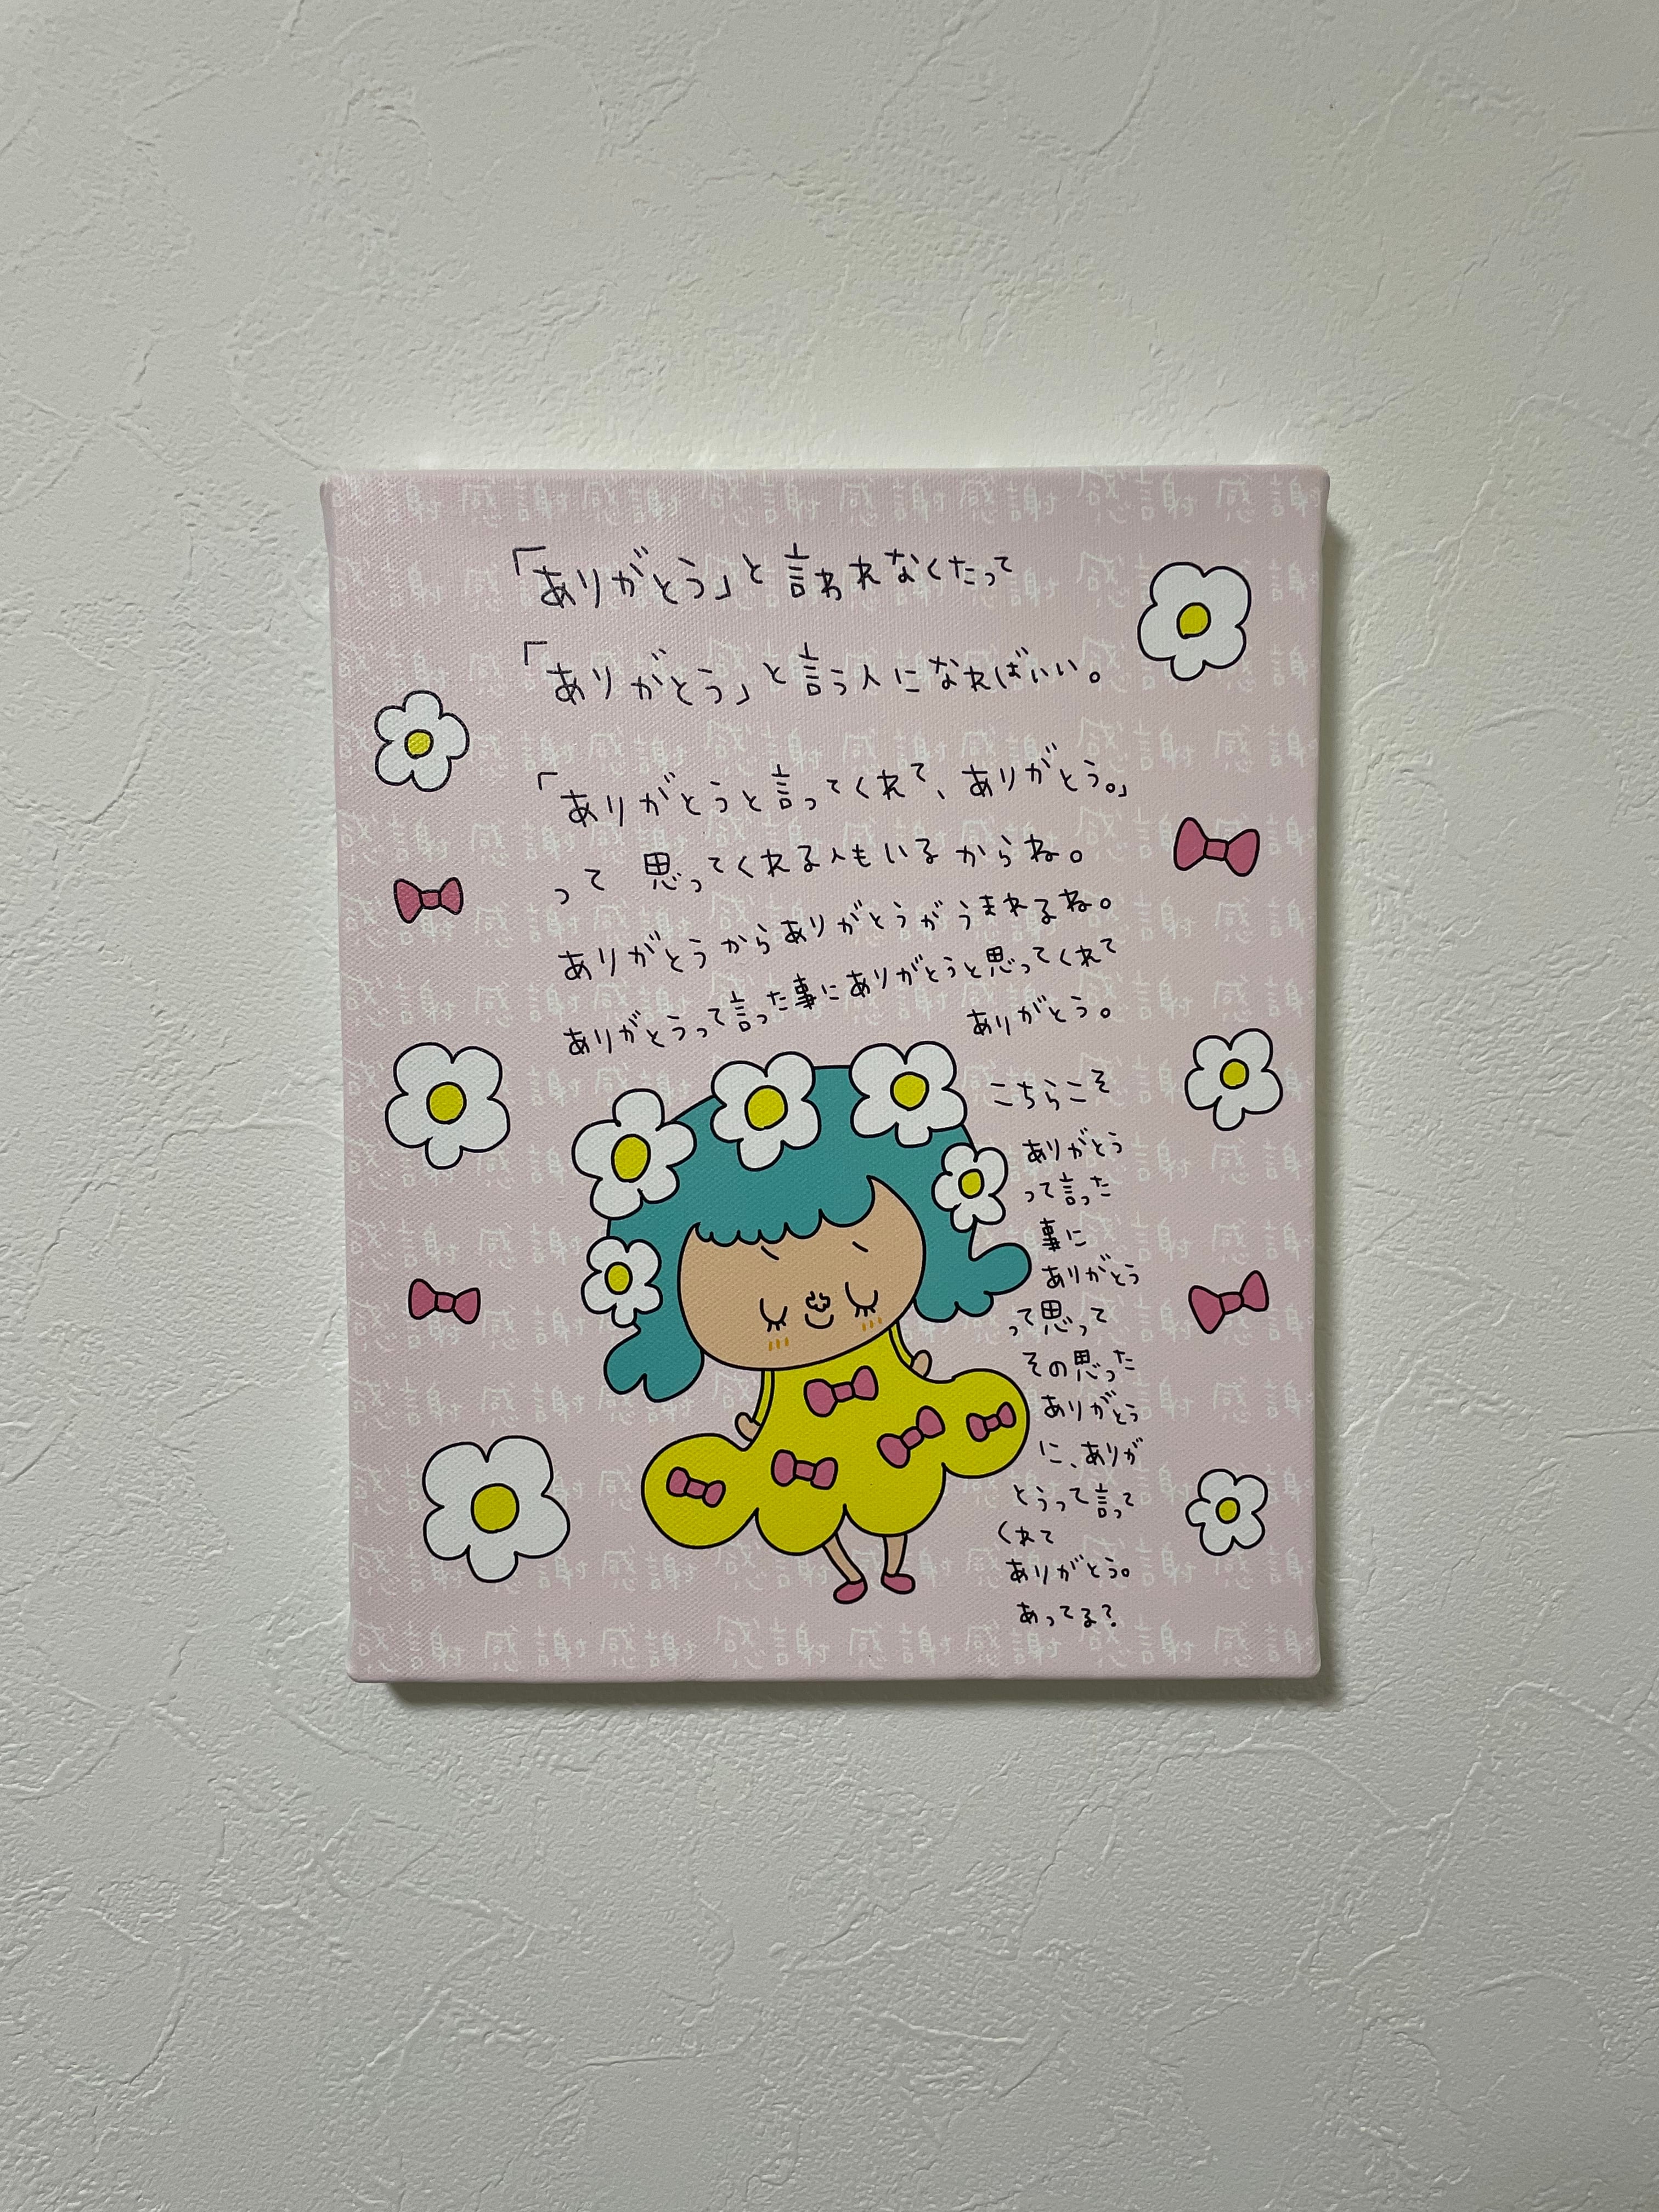 「ありがとう」と言われなくたって
「ありがとう」と言う人になればいい。
「ありがとうと言ってくれて、ありがとう。」
って 思ってくれる人もいるからね。
ありがとうからありがとうがうまれるね。
ありがとうって言った事にありがとうと思ってくれて
ありがとう。
こちらこそ
ありがとう
って言った
事に
ありがとう
って思って
その思った
ありがとう
に、ありが
とうって言って
くれて
ありがとう。
あってる?
感謝感謝感謝感謝感謝感謝感謝